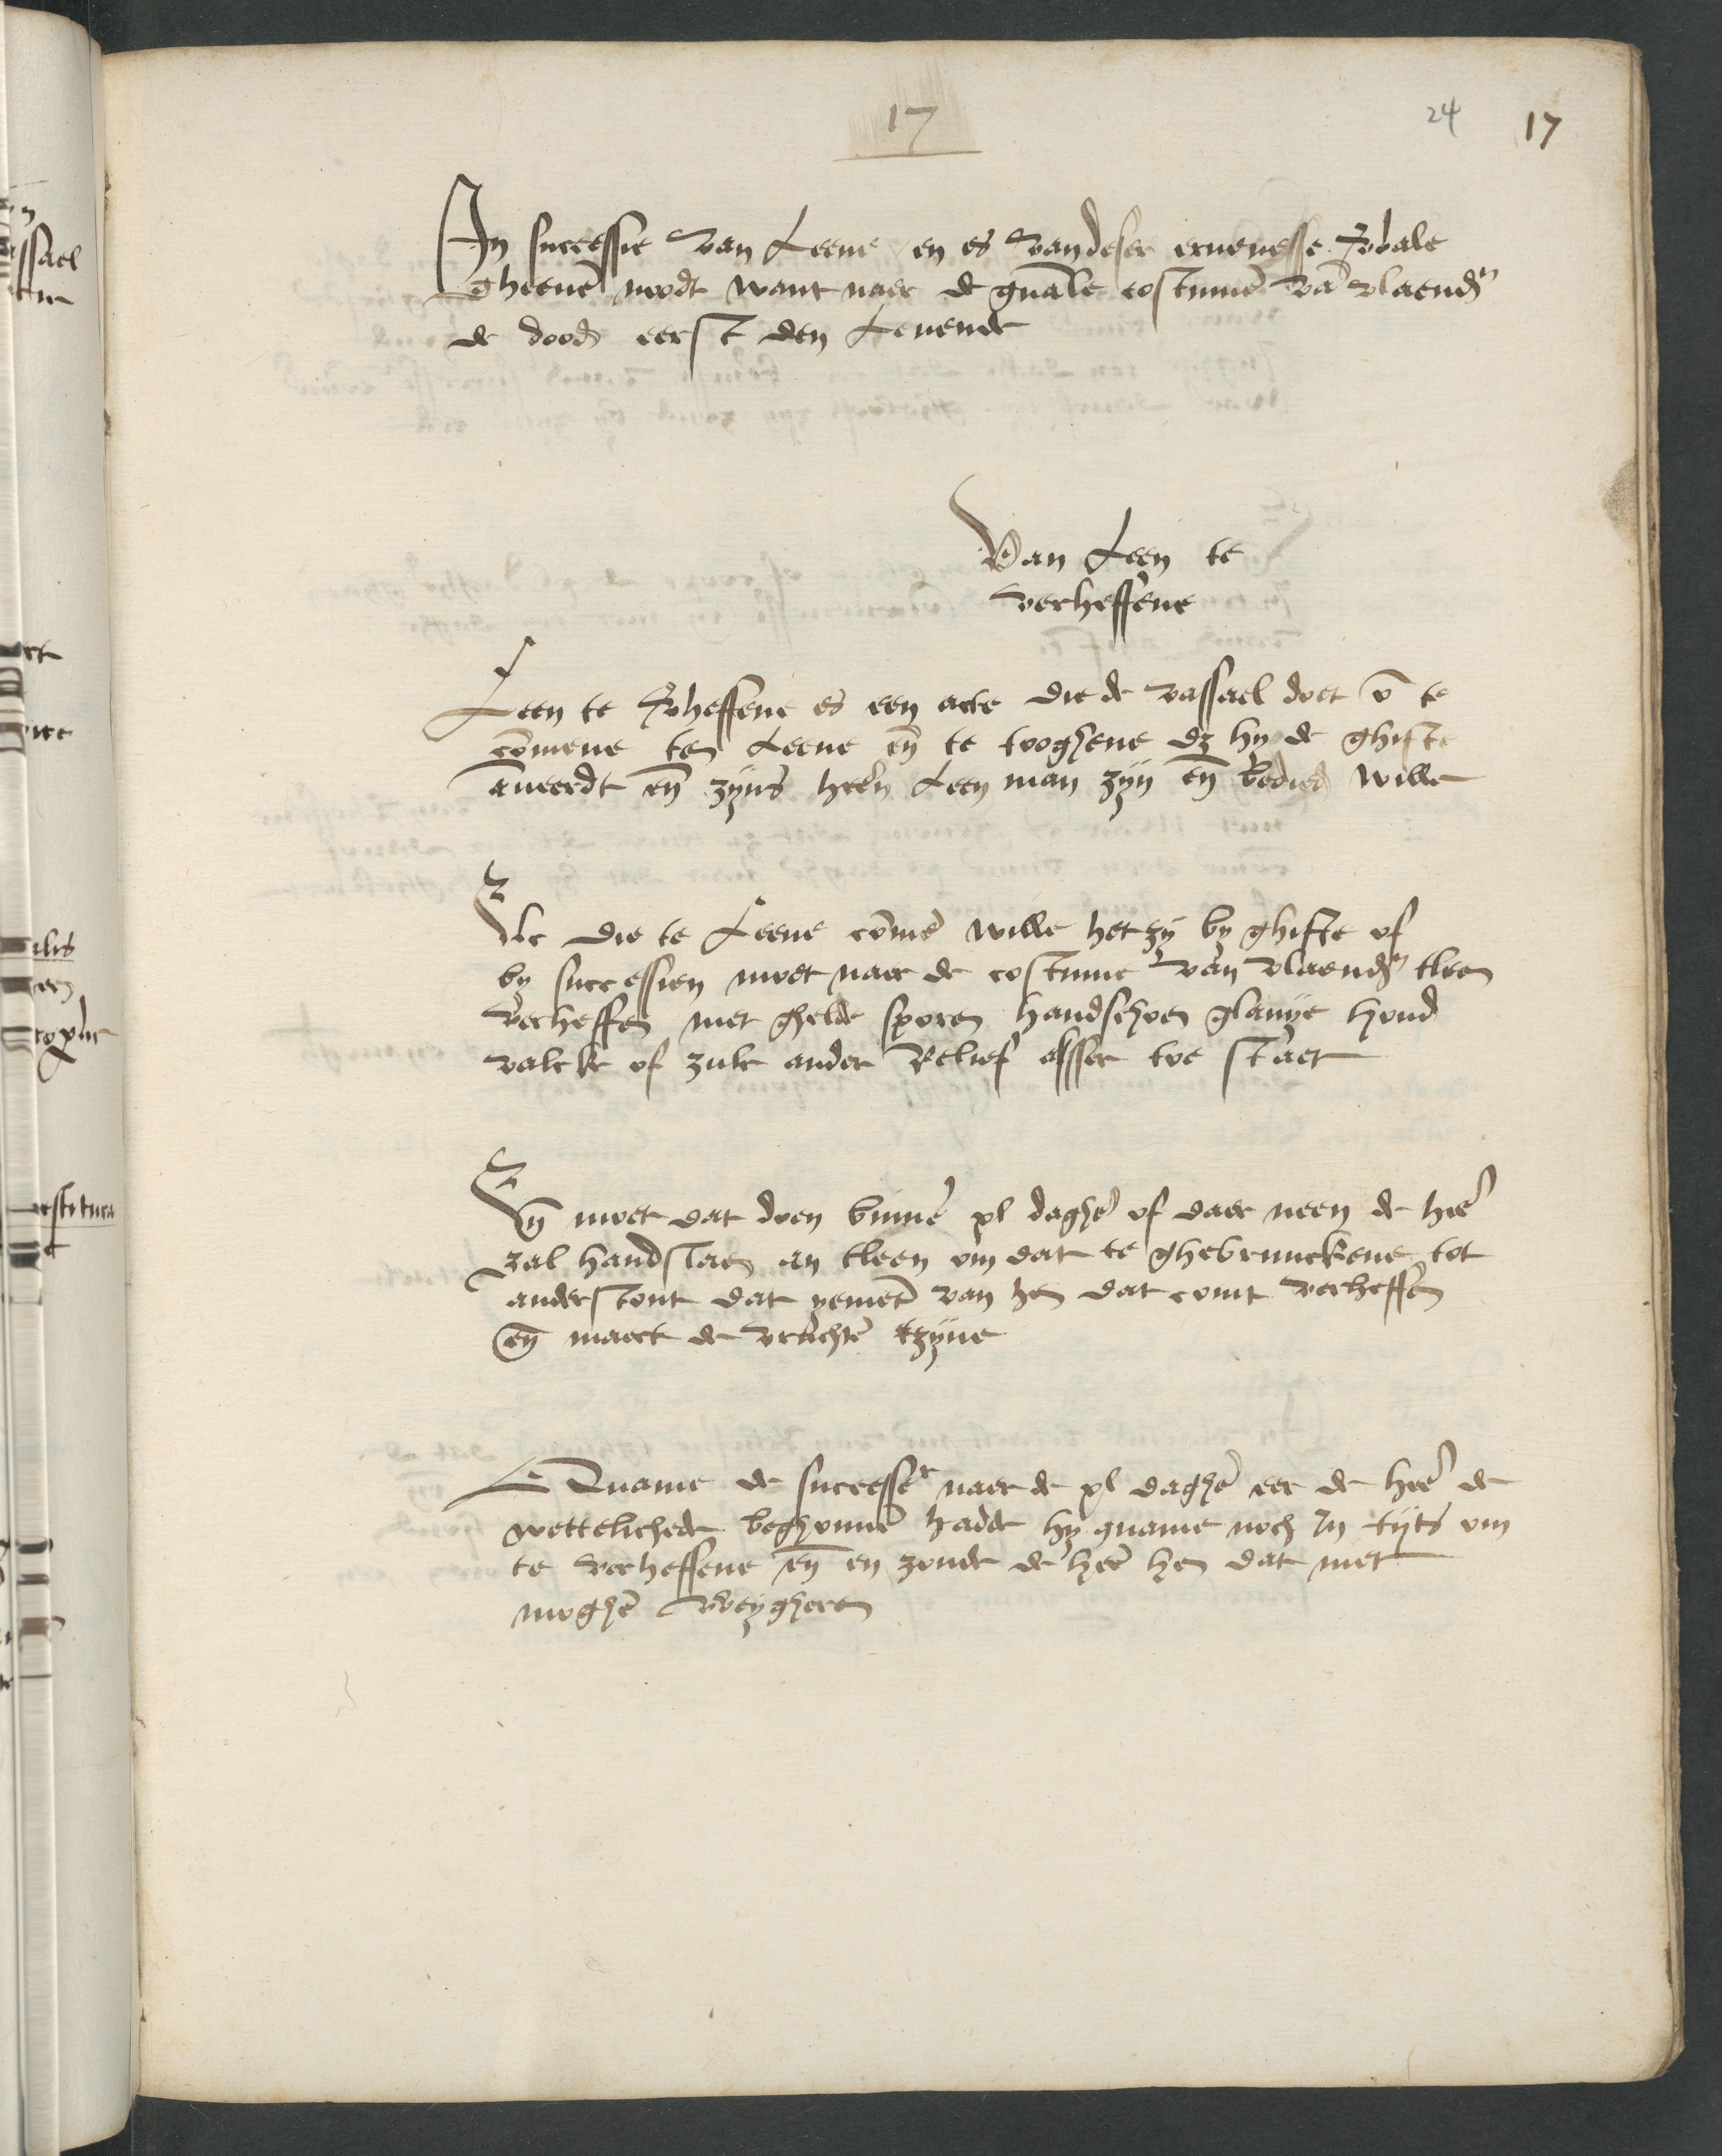 17
24 17
In successie van Leene en es van deser ervenesse Royale
gheenē noodt want naer de gnāle costumē vā vlaendrn
de doode eerst den Levende
Van Leen te
verheffene
Leen te v'heffene es een acte die de vassael doet ō te
cōmene ten Leene eñ te tooghene dz hy de ghifte
anveerdt eñ zyns heeren Leen man zyn eñ bedien wille
Elc die te Leene cōmē wille het zy by ghifte of
by successien moet naer de costume van vlaendrn tleen
verheffen met ghelde sporen handschoen glavye hond
valcke of zulc ander Relief alsser toe staet
Eñ moet dat doen binnē xl daghē of daer neen de heē
zal handslaen an tleen om dat te ghebruuckene tot
anderstont dat yemēt van hem dat comt verheffen
eñ maect de vruchtē tzyne
Quame de successer naer de xl daghē eer de heē de
wettelichede beghonnē hadde hy quame noch In tyts om
te verheffene eñ en zoude de heē hem dat niet
moghē weyghere
vssael
ilis
estitura